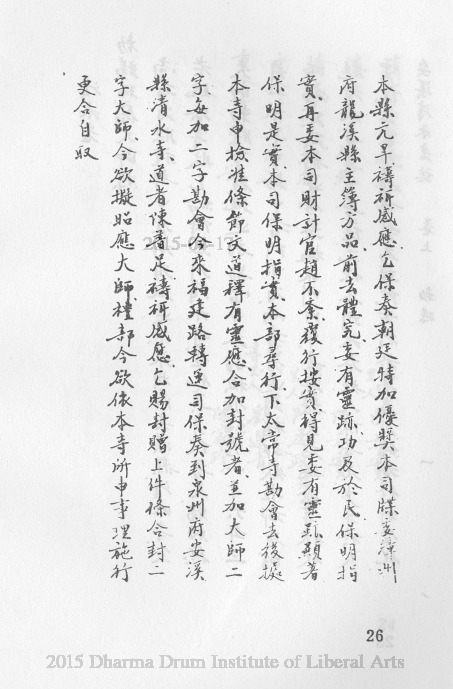 本縣亢旱禱祈感應乞保奏朝廷特加優獎本司牒委漳州
府龍溪縣主簿方品前去體究委有靈跡功及於民保明指
實再委本司財計官趙不紊覆行按實得見委有靈㒵顯著
保明是實本司保明指實本部尋行下太常寺勘會去後擬
本寺申檢准條節文道釋有靈應合加封號者並加大師二
字每加二字勘會今來福建路轉運司保奏到泉州府安溪
縣清水寺道者陳普足禱祈感應乞賜封贈上件條合封二
字大師今欲擬昭應大師禮部今欲依本寺所申事理施行
更合自取
26
2015-04-17
2015 Dharma Drum Institute of Liberal Arts